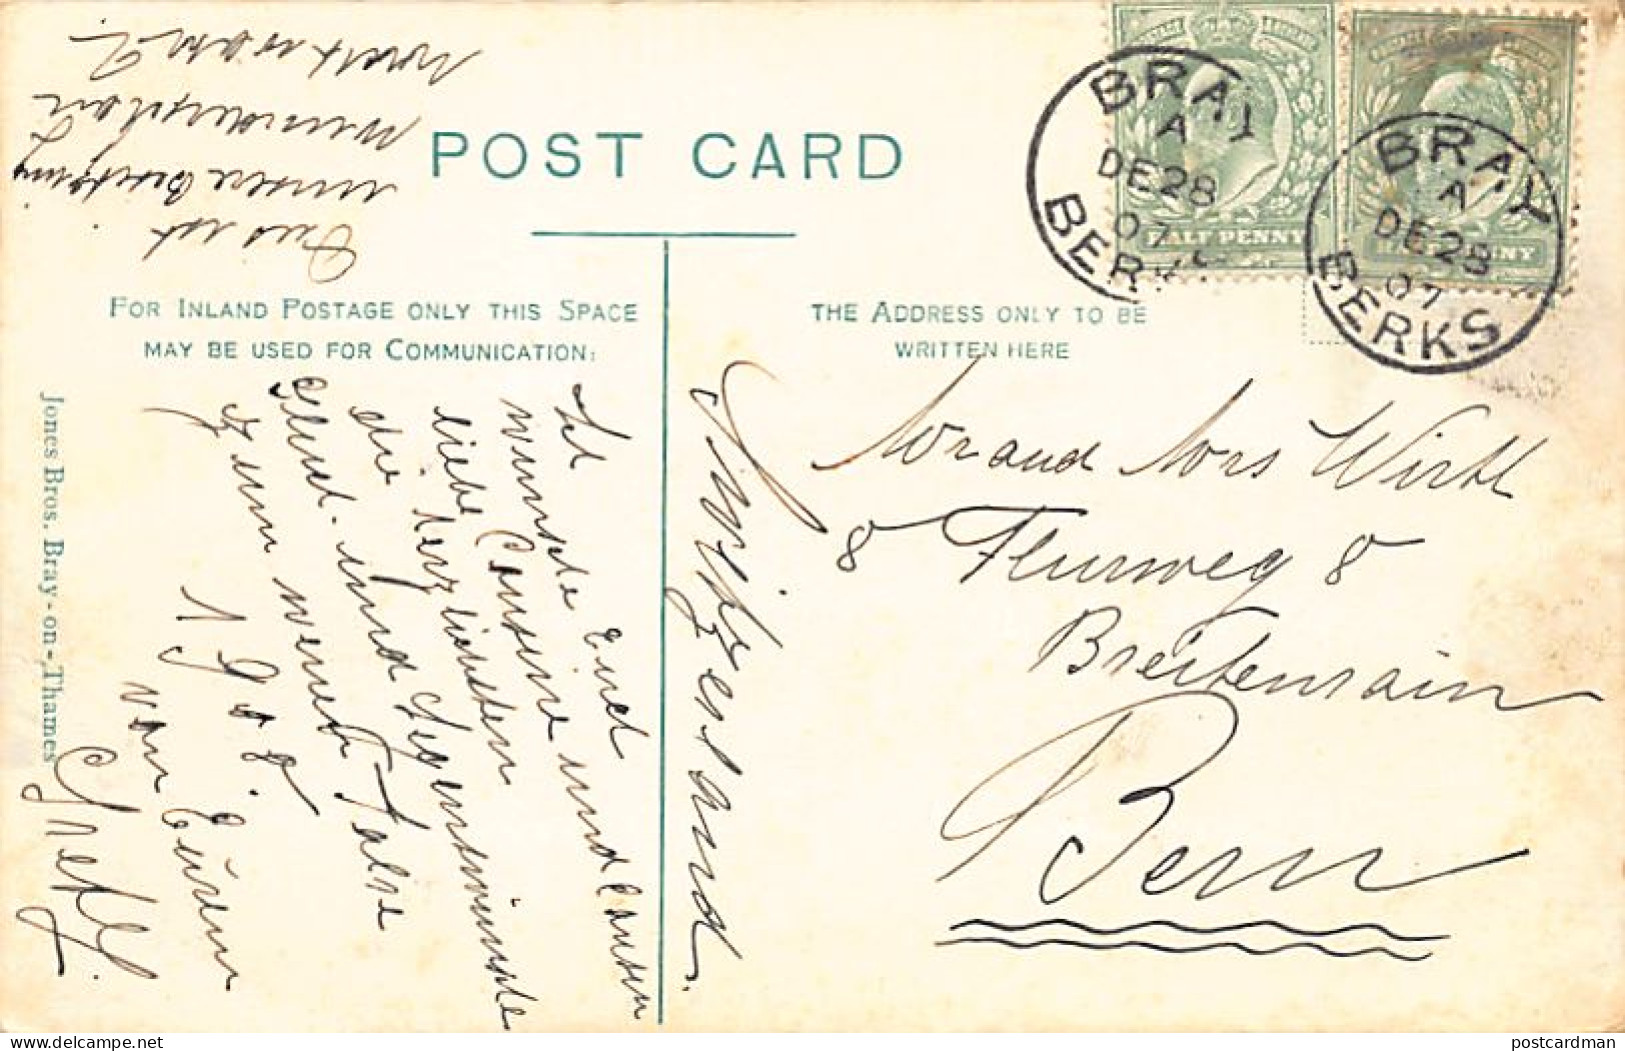 POST CARD
FOR INLAND POSTAGE ONLY THIS SPACE
MAY BE USED FOR COMMUNICATION:
THE ADDRESS ONLY TO BE
WRITTEN HERE
BRAY
A
DE 28
07
BERKS
HALF PENNY
BRAY
A
DE 28
07
BERKS
NY
Mr and Mrs Wirth
8 Flurweg 8
Breitenrain
Bern
Switzerland.
Ich
wünsche Euch
liebe Cousine und Cousin
die herzlichsten
Glück- und Segenswünsche
zum neuen Jahre
1908.
von Eurem
Das ist
unsere
Jones Bros. Bray-on-Thames
delcampe.net
postcardman